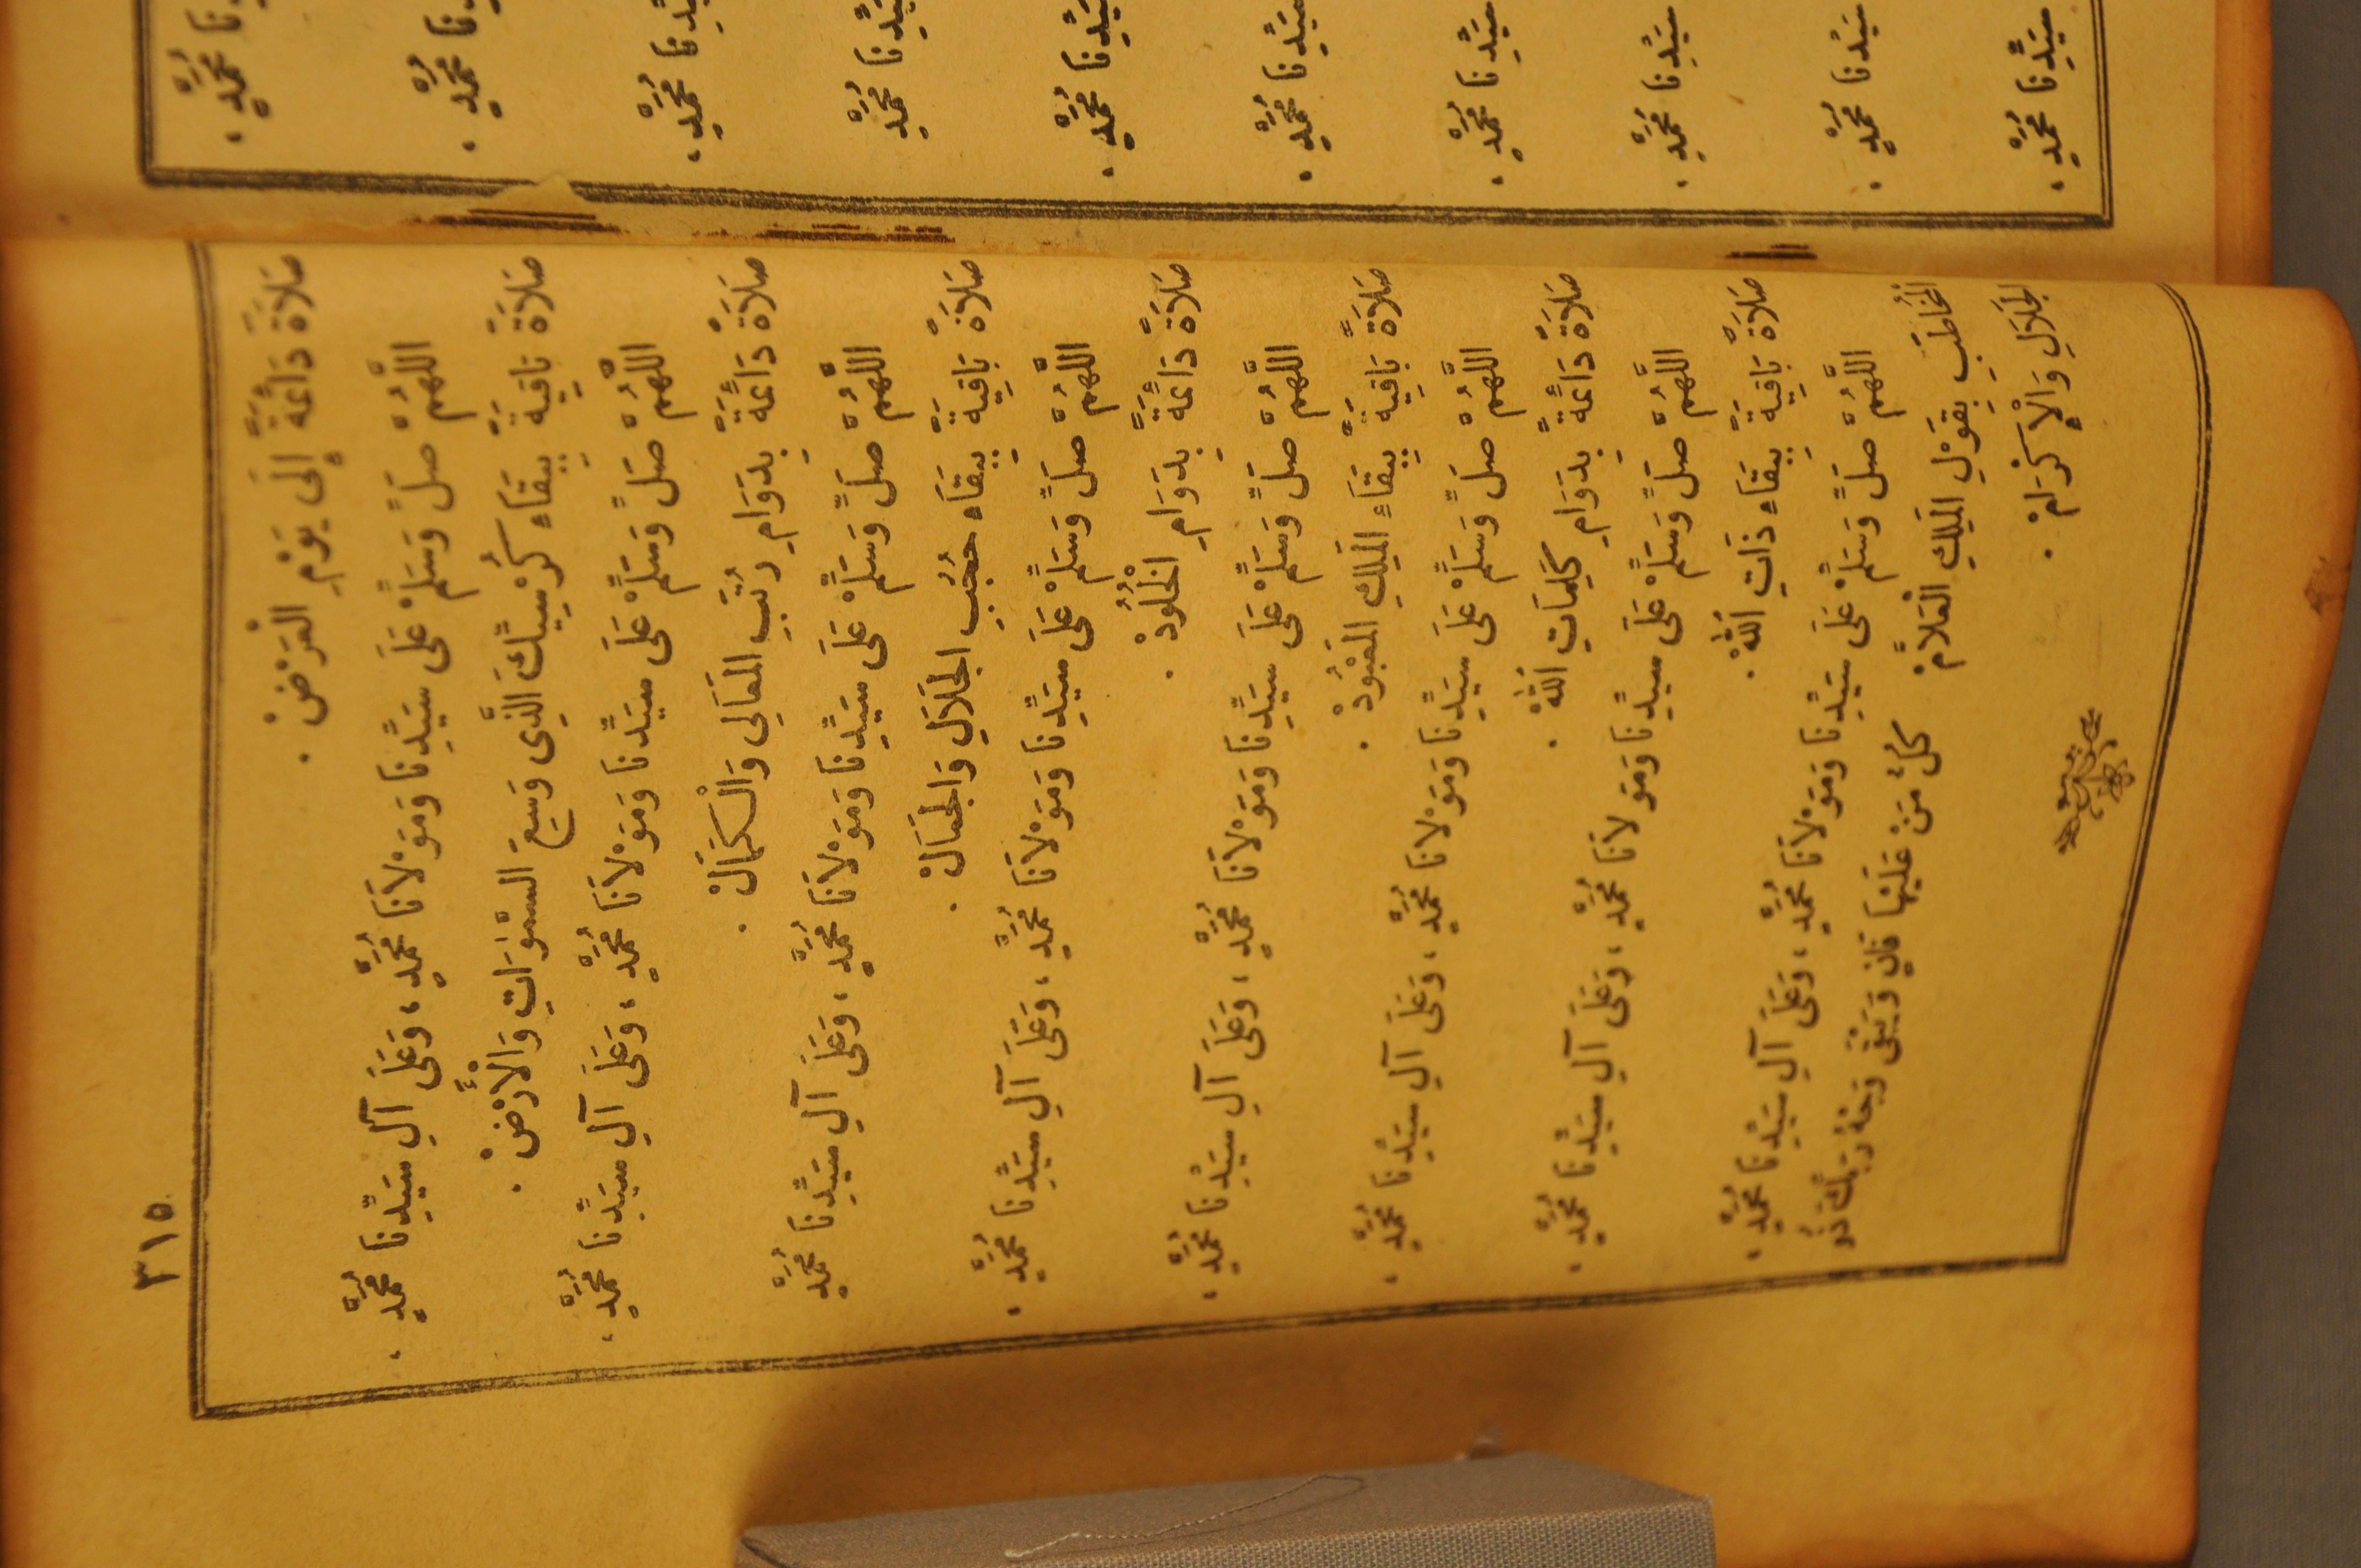 مُحَمَّدٍ،
مُحَمَّدٍ،
مُحَمَّدٍ،
سَيِّدِنَا مُحَمَّدٍ
سَيِّدِنَا مُحَمَّدٍ،
سَيِّدِنَا مُحَمَّدٍ،
سَيِّدِنَا مُحَمَّدٍ،
سَيِّدِنَا مُحَمَّدٍ،
سَيِّدِنَا مُحَمَّدٍ،
سَيِّدِنَا مُحَمَّدٍ،
٣١٥
صَلَاةً دَائِمَةً إِلَى يَوْمِ الْعَرْضْ .
اللَّهُمَّ صَلِّ وَسَلِّمْ عَلَى سَيِّدِنَا وَمَوْلَانَا مُحَمَّدٍ، وَعَلَى آلِ سَيِّدِنَا مُحَمَّدٍ،
صَلَاةً بَاقِيَةً بِبَقَاءِ كُرْسِيِّكَ الَّذِى وَسِعَ السَّمٰوَاتِ وَالْأَرْضْ .
اللَّهُمَّ صَلِّ وَسَلِّمْ عَلَى سَيِّدِنَا وَمَوْلَانَا مُحَمَّدٍ، وَعَلَى آلِ سَيِّدِنَا مُحَمَّدٍ،
صَلَاةً دَائِمَةً بِدَوَامِ رُتَبِ الْمَعَالِى وَالْكَمَالْ .
اللَّهُمَّ صَلِّ وَسَلِّمْ عَلَى سَيِّدِنَا وَمَوْلَانَا مُحَمَّدٍ، وَعَلَى آلِ سَيِّدِنَا مُحَمَّدٍ
صَلَاةً بَاقِيَةً بِبَقَاءِ حُجُبِ الْجَلَالِ وَالْجَمَالْ .
اللَّهُمَّ صَلِّ وَسَلِّمْ عَلَى سَيِّدِنَا وَمَوْلَانَا مُحَمَّدٍ، وَعَلَى آلِ سَيِّدِنَا مُحَمَّدٍ،
صَلَاةً دَائِمَةً بِدَوَامِ الْخُلُودْ .
اللَّهُمَّ صَلِّ وَسَلِّمْ عَلَى سَيِّدِنَا وَمَوْلَانَا مُحَمَّدٍ، وَعَلَى آلِ سَيِّدِنَا مُحَمَّدٍ،
صَلَاةً بَاقِيَةً بِبَقَاءِ الْمَلِكِ الْمَعْبُودْ .
اللَّهُمَّ صَلِّ وَسَلِّمْ عَلَى سَيِّدِنَا وَمَوْلَانَا مُحَمَّدٍ، وَعَلَى آلِ سَيِّدِنَا مُحَمَّدٍ،
صَلَاةً دَائِمَةً بِدَوَامِ كَلِمَاتِ اللهْ .
اللَّهُمَّ صَلِّ وَسَلِّمْ عَلَى سَيِّدِنَا وَمَوْلَانَا مُحَمَّدٍ، وَعَلَى آلِ سَيِّدِنَا مُحَمَّدٍ،
صَلَاةً بَاقِيَةً بِبَقَاءِ ذَاتِ اللهْ .
اللَّهُمَّ صَلِّ وَسَلِّمْ عَلَى سَيِّدِنَا وَمَوْلَانَا مُحَمَّدٍ، وَعَلَى آلِ سَيِّدِنَا مُحَمَّدٍ،
الْمُخَاطَبِ بِقَوْلِ الْمَلِكِ الْعَلَّامْ كُلُّ مَنْ عَلَيْهَا فَانٍ وَيَبْقَى وَجْهُ رَبِّكَ ذُو
الْجَلَالِ وَالْإِكْرَامْ .